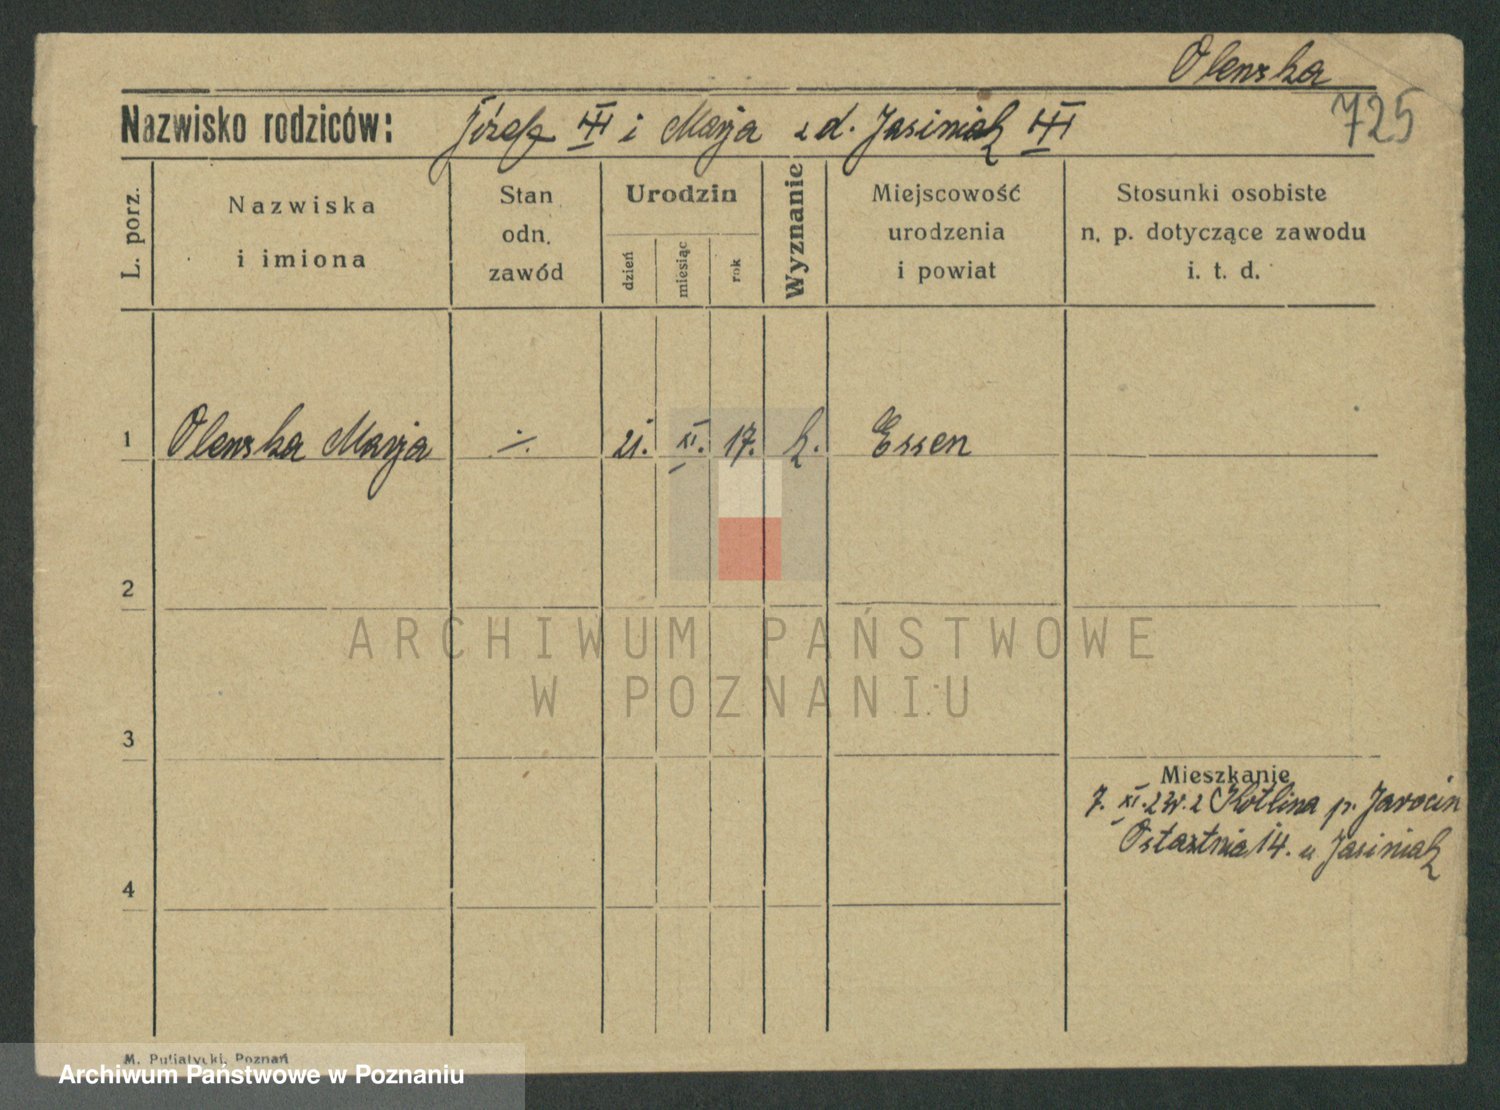 Olenska
Nazwisko rodziców: Józef i Marja z d. Jasiniak
725
L. porz.
Nazwiska
i imiona
Stan
odn.
zawód
Urodzin
dzień
miesiąc
rok
Wyznanie
Miejscowość
urodzenia
i powiat
Stosunki osobiste
n. p. dotyczące zawodu
i. t. d.
1 Olenska Marja ÷. 21. XI. 17. k. Essen
2
ARCHIWUM PAŃSTWOWE
W POZNANIU
3
Mieszkanie
7. XI. 2 Kotlina p. Jarocin
Ostatnia 14. u Jasiniak
4
M. Putiatycki, Poznań
Archiwum Państwowe w Poznaniu